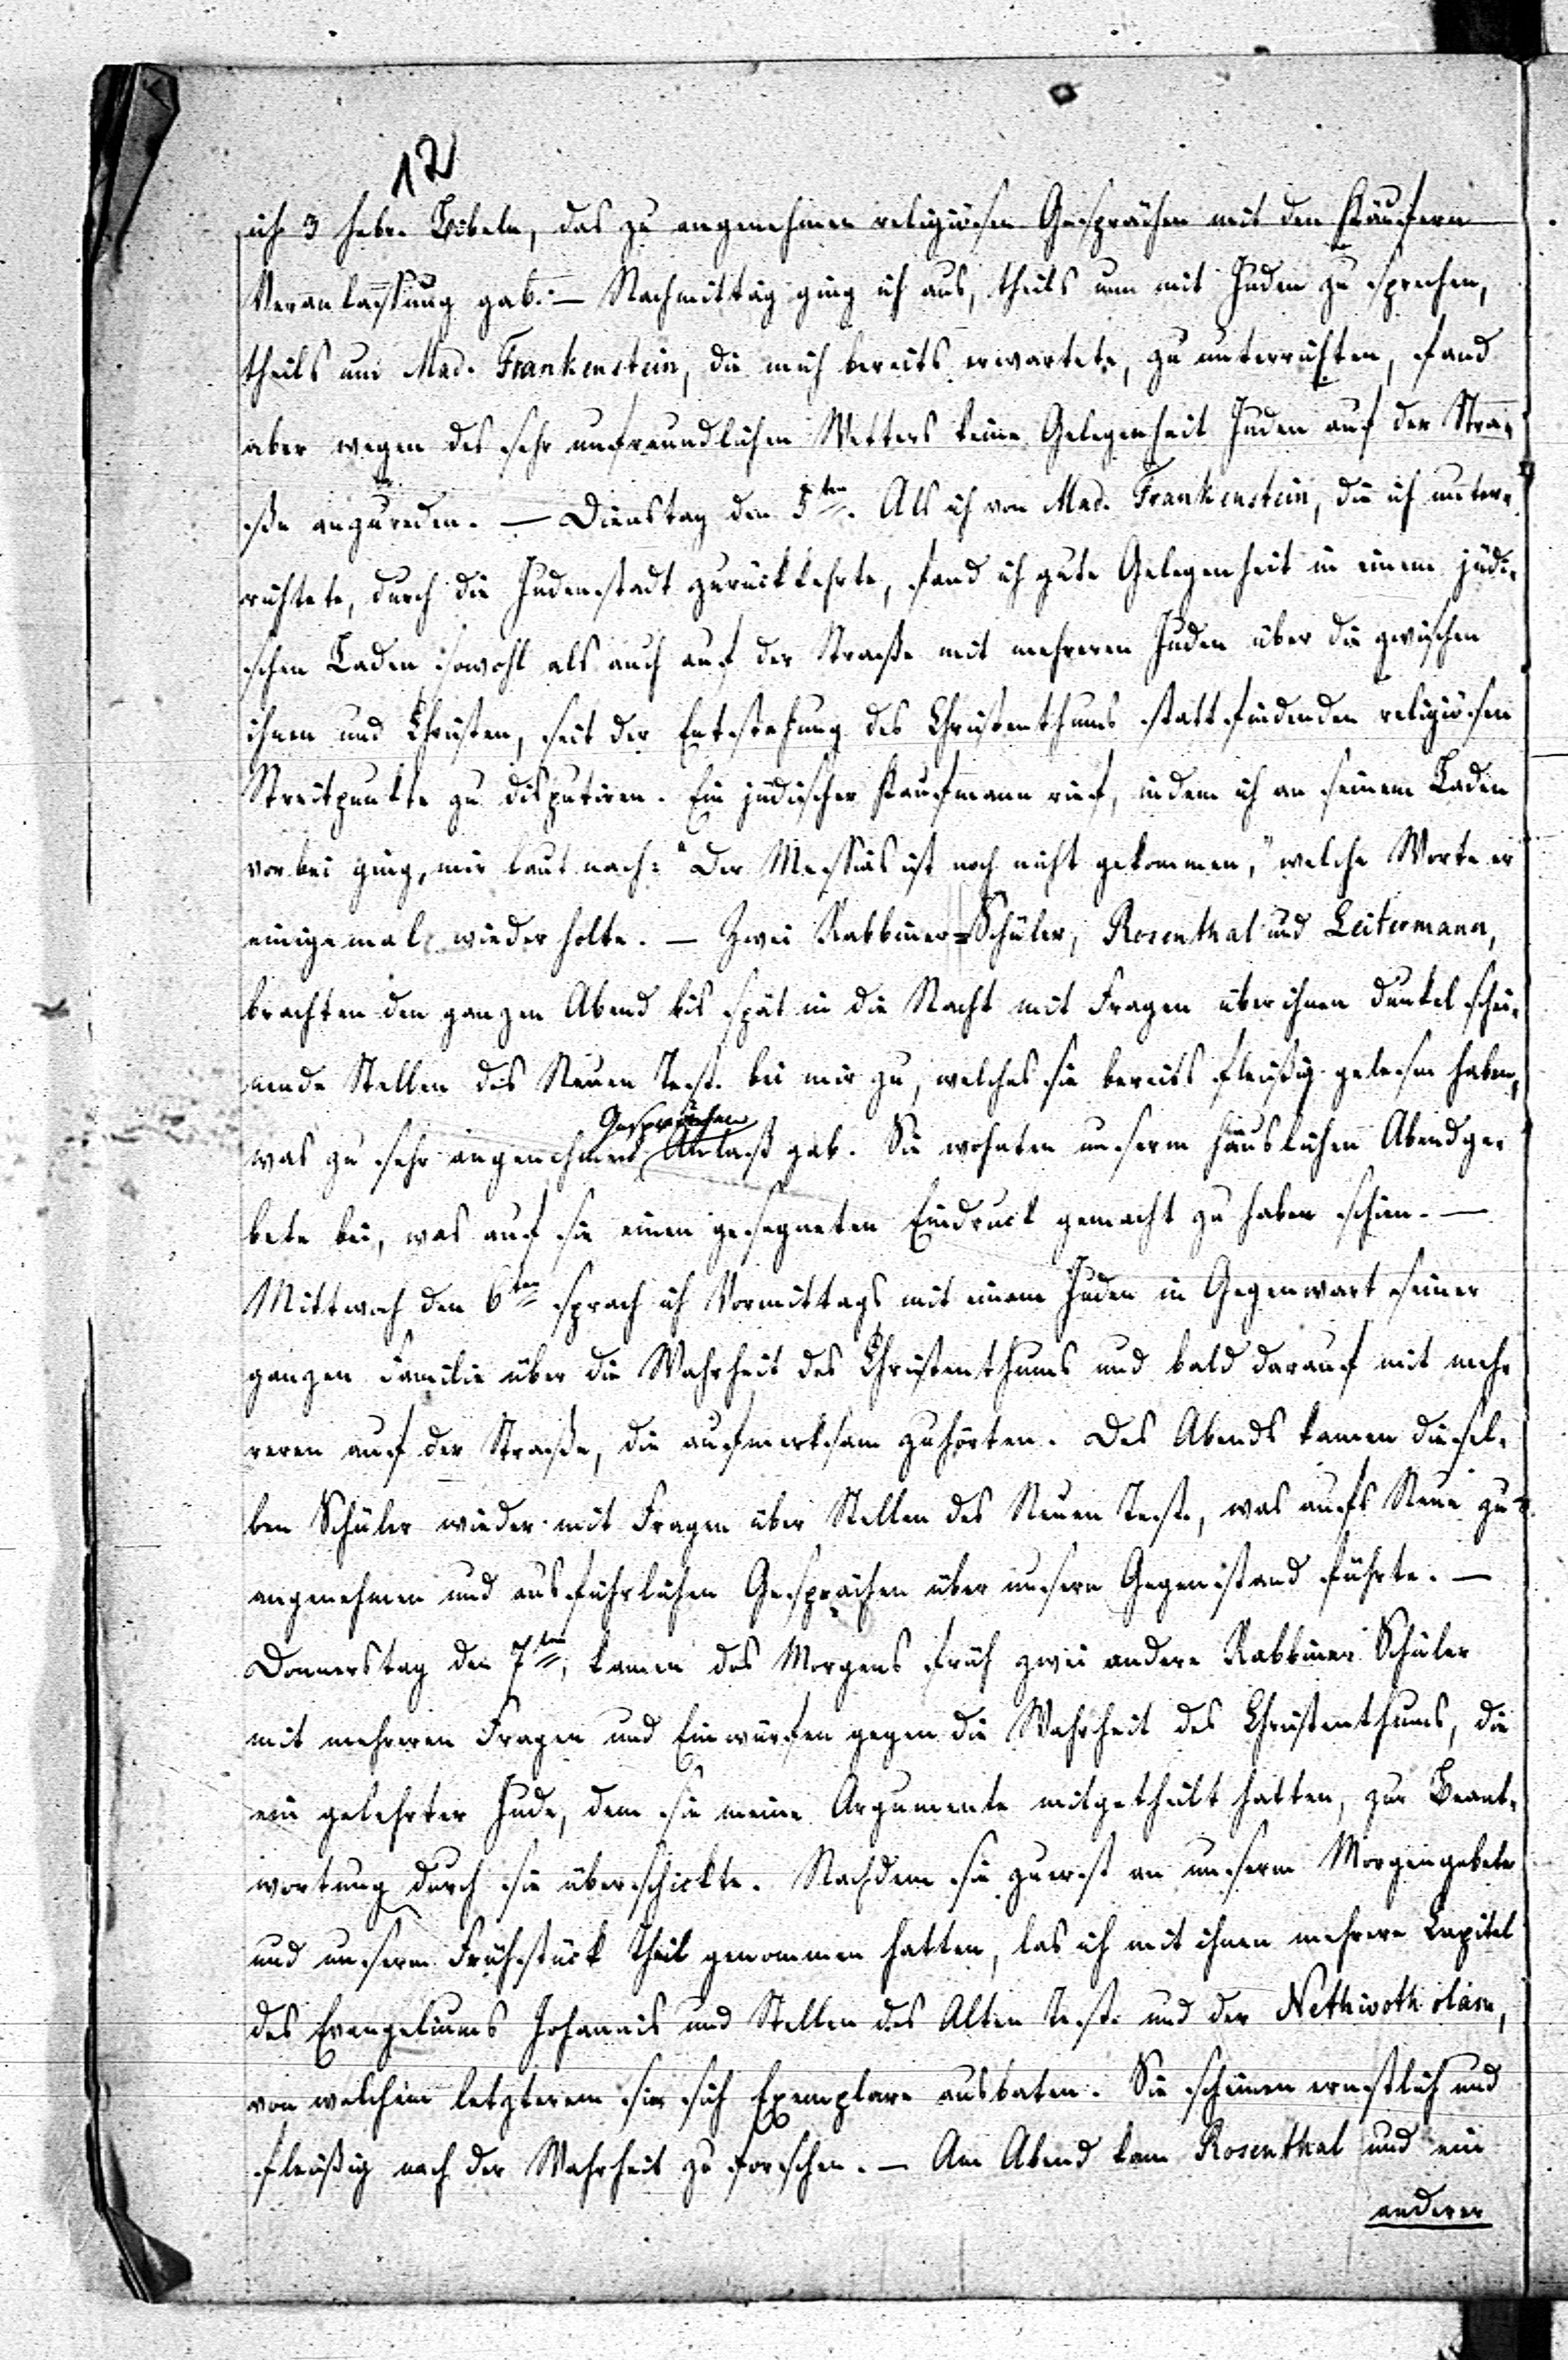 12
ich 3 hebr. Bibeln, das zu angenehmen religiösen Gesprächen mit den Käufern
Veranlassung gab. — Nachmittag ging ich aus, theils um mit Juden zu sprechen,
theils um Mad. Frankenstein, die mich bereits erwartete, zu unterrichten, fand
aber wegen des sehr unfreundlichen Wetters keine Gelegenheit Juden auf der Stra-
ße anzureden. — Dienstag den 5ten. Als ich von Mad. Frankenstein, die ich unter-
richtete, durch die Judenstadt zurückkehrte, fand ich gute Gelegenheit in einem jüdi-
schen Laden sowohl als auch auf der Straße mit mehreren Juden über die zwischen
ihnen und Christen, seit der Entstehung des Christenthums stattfindenden religiösen
Streitpunkte zu disputiren. Ein jüdischer Kaufmann rief, indem ich an seinem Laden
vorbei ging, mir laut nach: "Der Messias ist noch nicht gekommen," welche Worte er
einigemal wiederholte. — Zwei Rabbiner=Schüler, Rosenthal und Leitermann,
brachten den ganzen Abend bis spät in die Nacht mit Fragen über ihnen dunkel schei-
nende Stellen des Neuen Test. bei mir zu, welches sie bereits fleißig gelesen haben,
Gesprächen
was zu sehr angenehmen Anlaß gab. Sie wohnten unserm häuslichen Abendge-
bete bei, was auf sie einen gesegneten Eindruck gemacht zu haben schien. —
Mittwoch den 6ten sprach ich Vormittags mit einem Juden in Gegenwart seiner
ganzen Familie über die Wahrheit des Christenthums und bald darauf mit meh-
reren auf der Straße, die aufmerksam zuhörten. Des Abends kamen diesel-
ben Schüler wieder mit Fragen über Stellen des Neuen Test., was aufs Neue zu
angenehmen und ausführlichen Gesprächen über unsern Gegenstand führte. —
Donnerstag den 7ten, kamen des Morgens früh zwei andere Rabbiner Schüler
mit mehreren Fragen und Einwürfen gegen die Wahrheit des Christenthums, die
ein gelehrter Jude, dem sie meine Argumente mitgetheilt hatten, zur Beant-
wortung durch sie überschickte. Nachdem sie zuerst an unserm Morgengebete
und unserm Frühstück Theil genommen hatten, las ich mit ihnen mehrere Capitel
des Evangeliums Johannis und Stellen des Alten Test. und der Nethivoth olam,
von welchem letzterem sie sich Exemplare ausbaten. Sie scheinen ernstlich und
fleißig nach der Wahrheit zu forschen. — Am Abend kam Rosenthal und ein
anderer